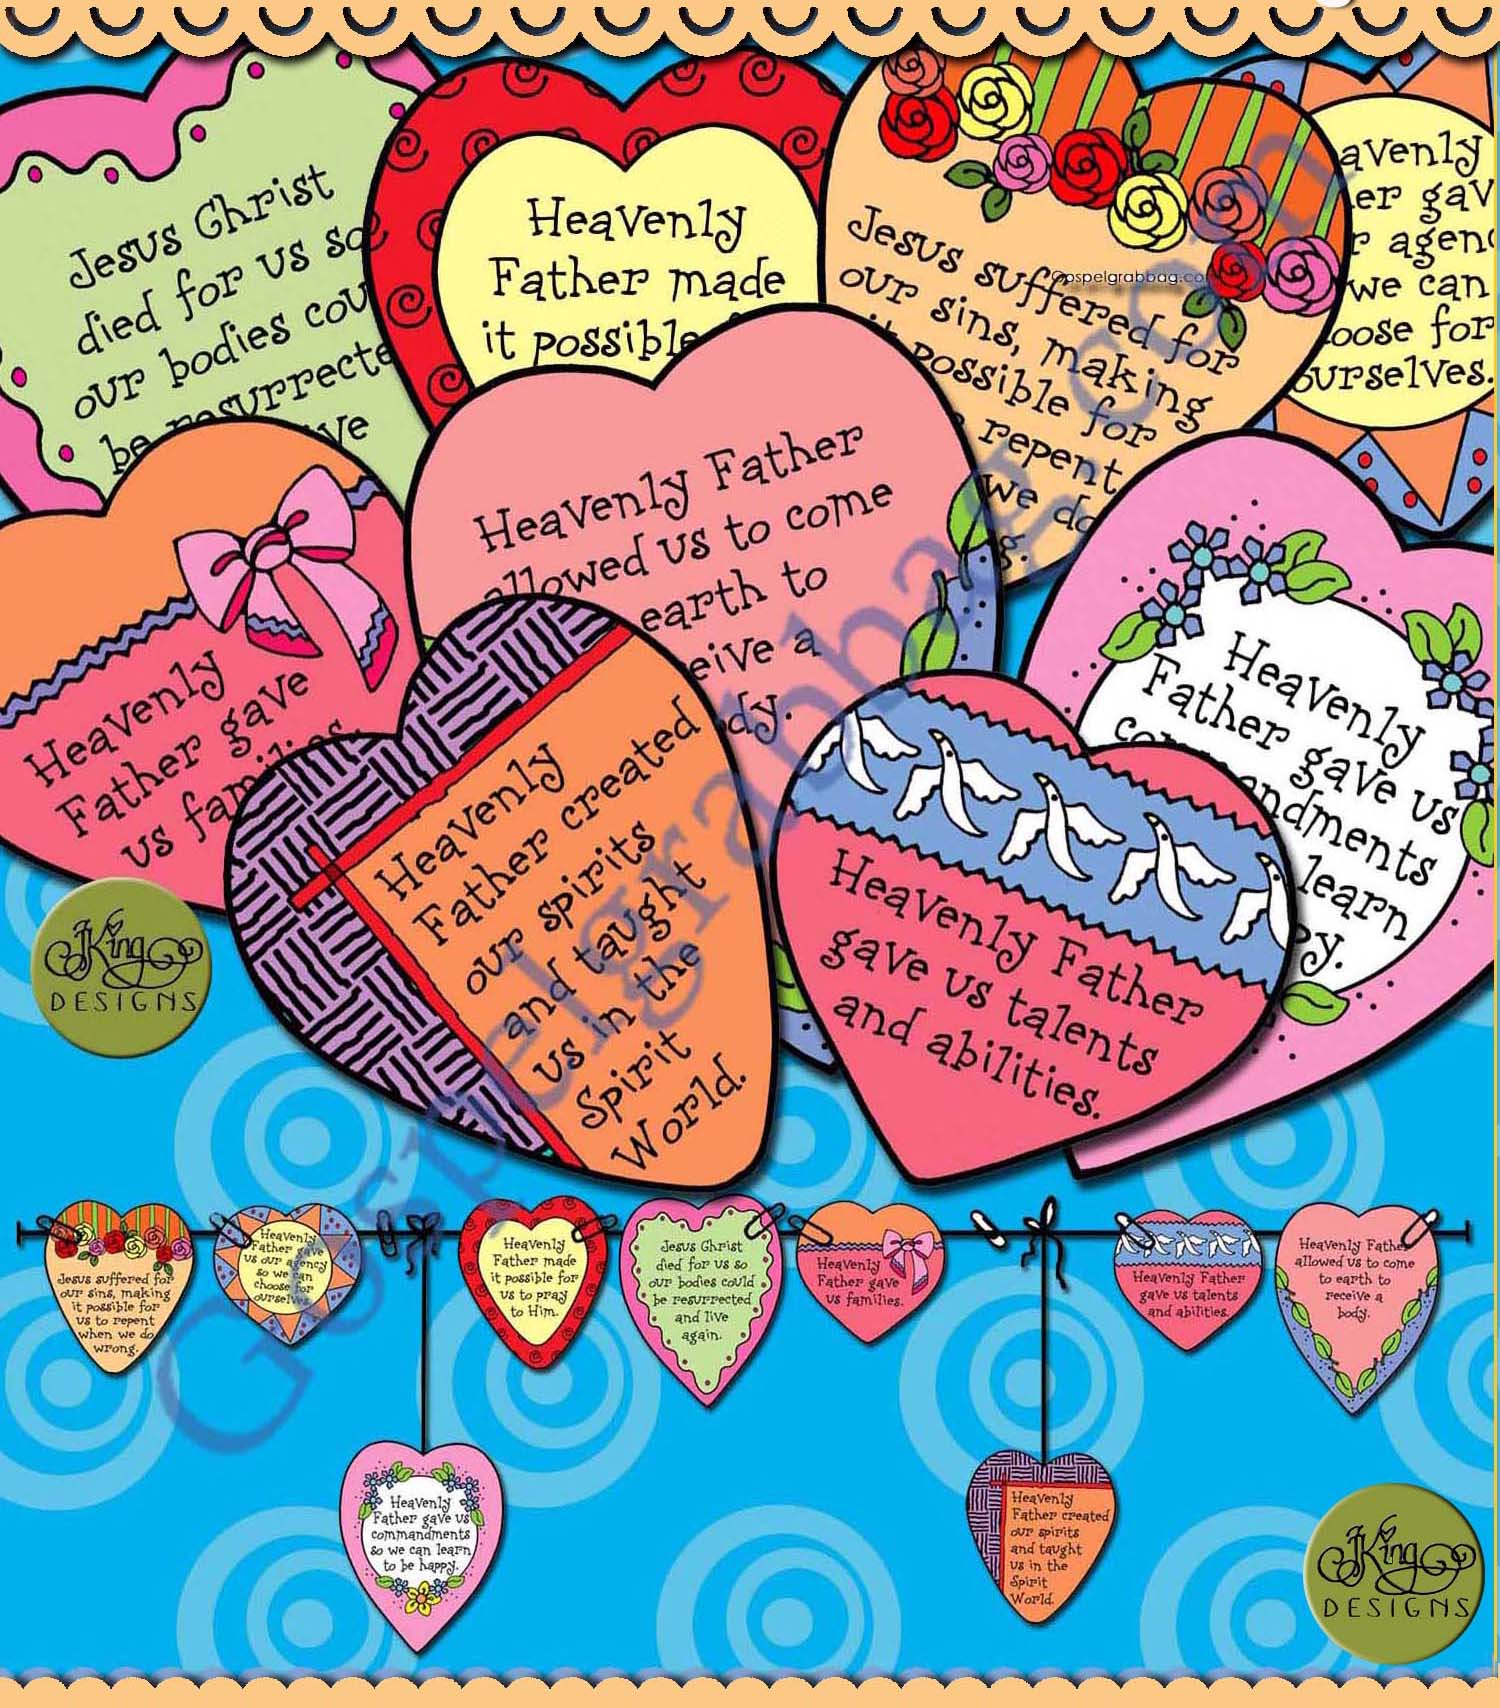 Jesus Christ
died for us so
our bodies cou
be resurrecte
ve
Heavenly
Father made
it possible
Jesus suffered for
our sins, making
it possible for
repent
we do
g.
Gospelgrabbag.com
avenly
er gav
r agen
we can
oose for
ourselves.
Heavenly
Father gave
us families.
Heavenly Father
allowed us to come
earth to
eive a
dy.
Heavenly
Father gave us
commandments
learn
py.
Heavenly
Father created
our spirits
and taught
us in the
Spirit
World.
Heavenly Father
gave us talents
and abilities.
Gospelgrabbag.com
JKing
DESIGNS
Jesus suffered for
our sins, making
it possible for
us to repent
when we do
wrong.
Heavenly
Father gave
us our agency
so we can
choose for
ourselves.
Heavenly
Father made
it possible for
us to pray
to Him.
Jesus Christ
died for us so
our bodies could
be resurrected
and live
again.
Heavenly
Father gave
us families.
Heavenly Father
gave us talents
and abilities.
Heavenly Father
allowed us to come
to earth to
receive a
body.
Heavenly
Father gave us
commandments
so we can learn
to be happy.
Heavenly
Father created
our spirits
and taught
us in the
Spirit
World.
JKing
DESIGNS